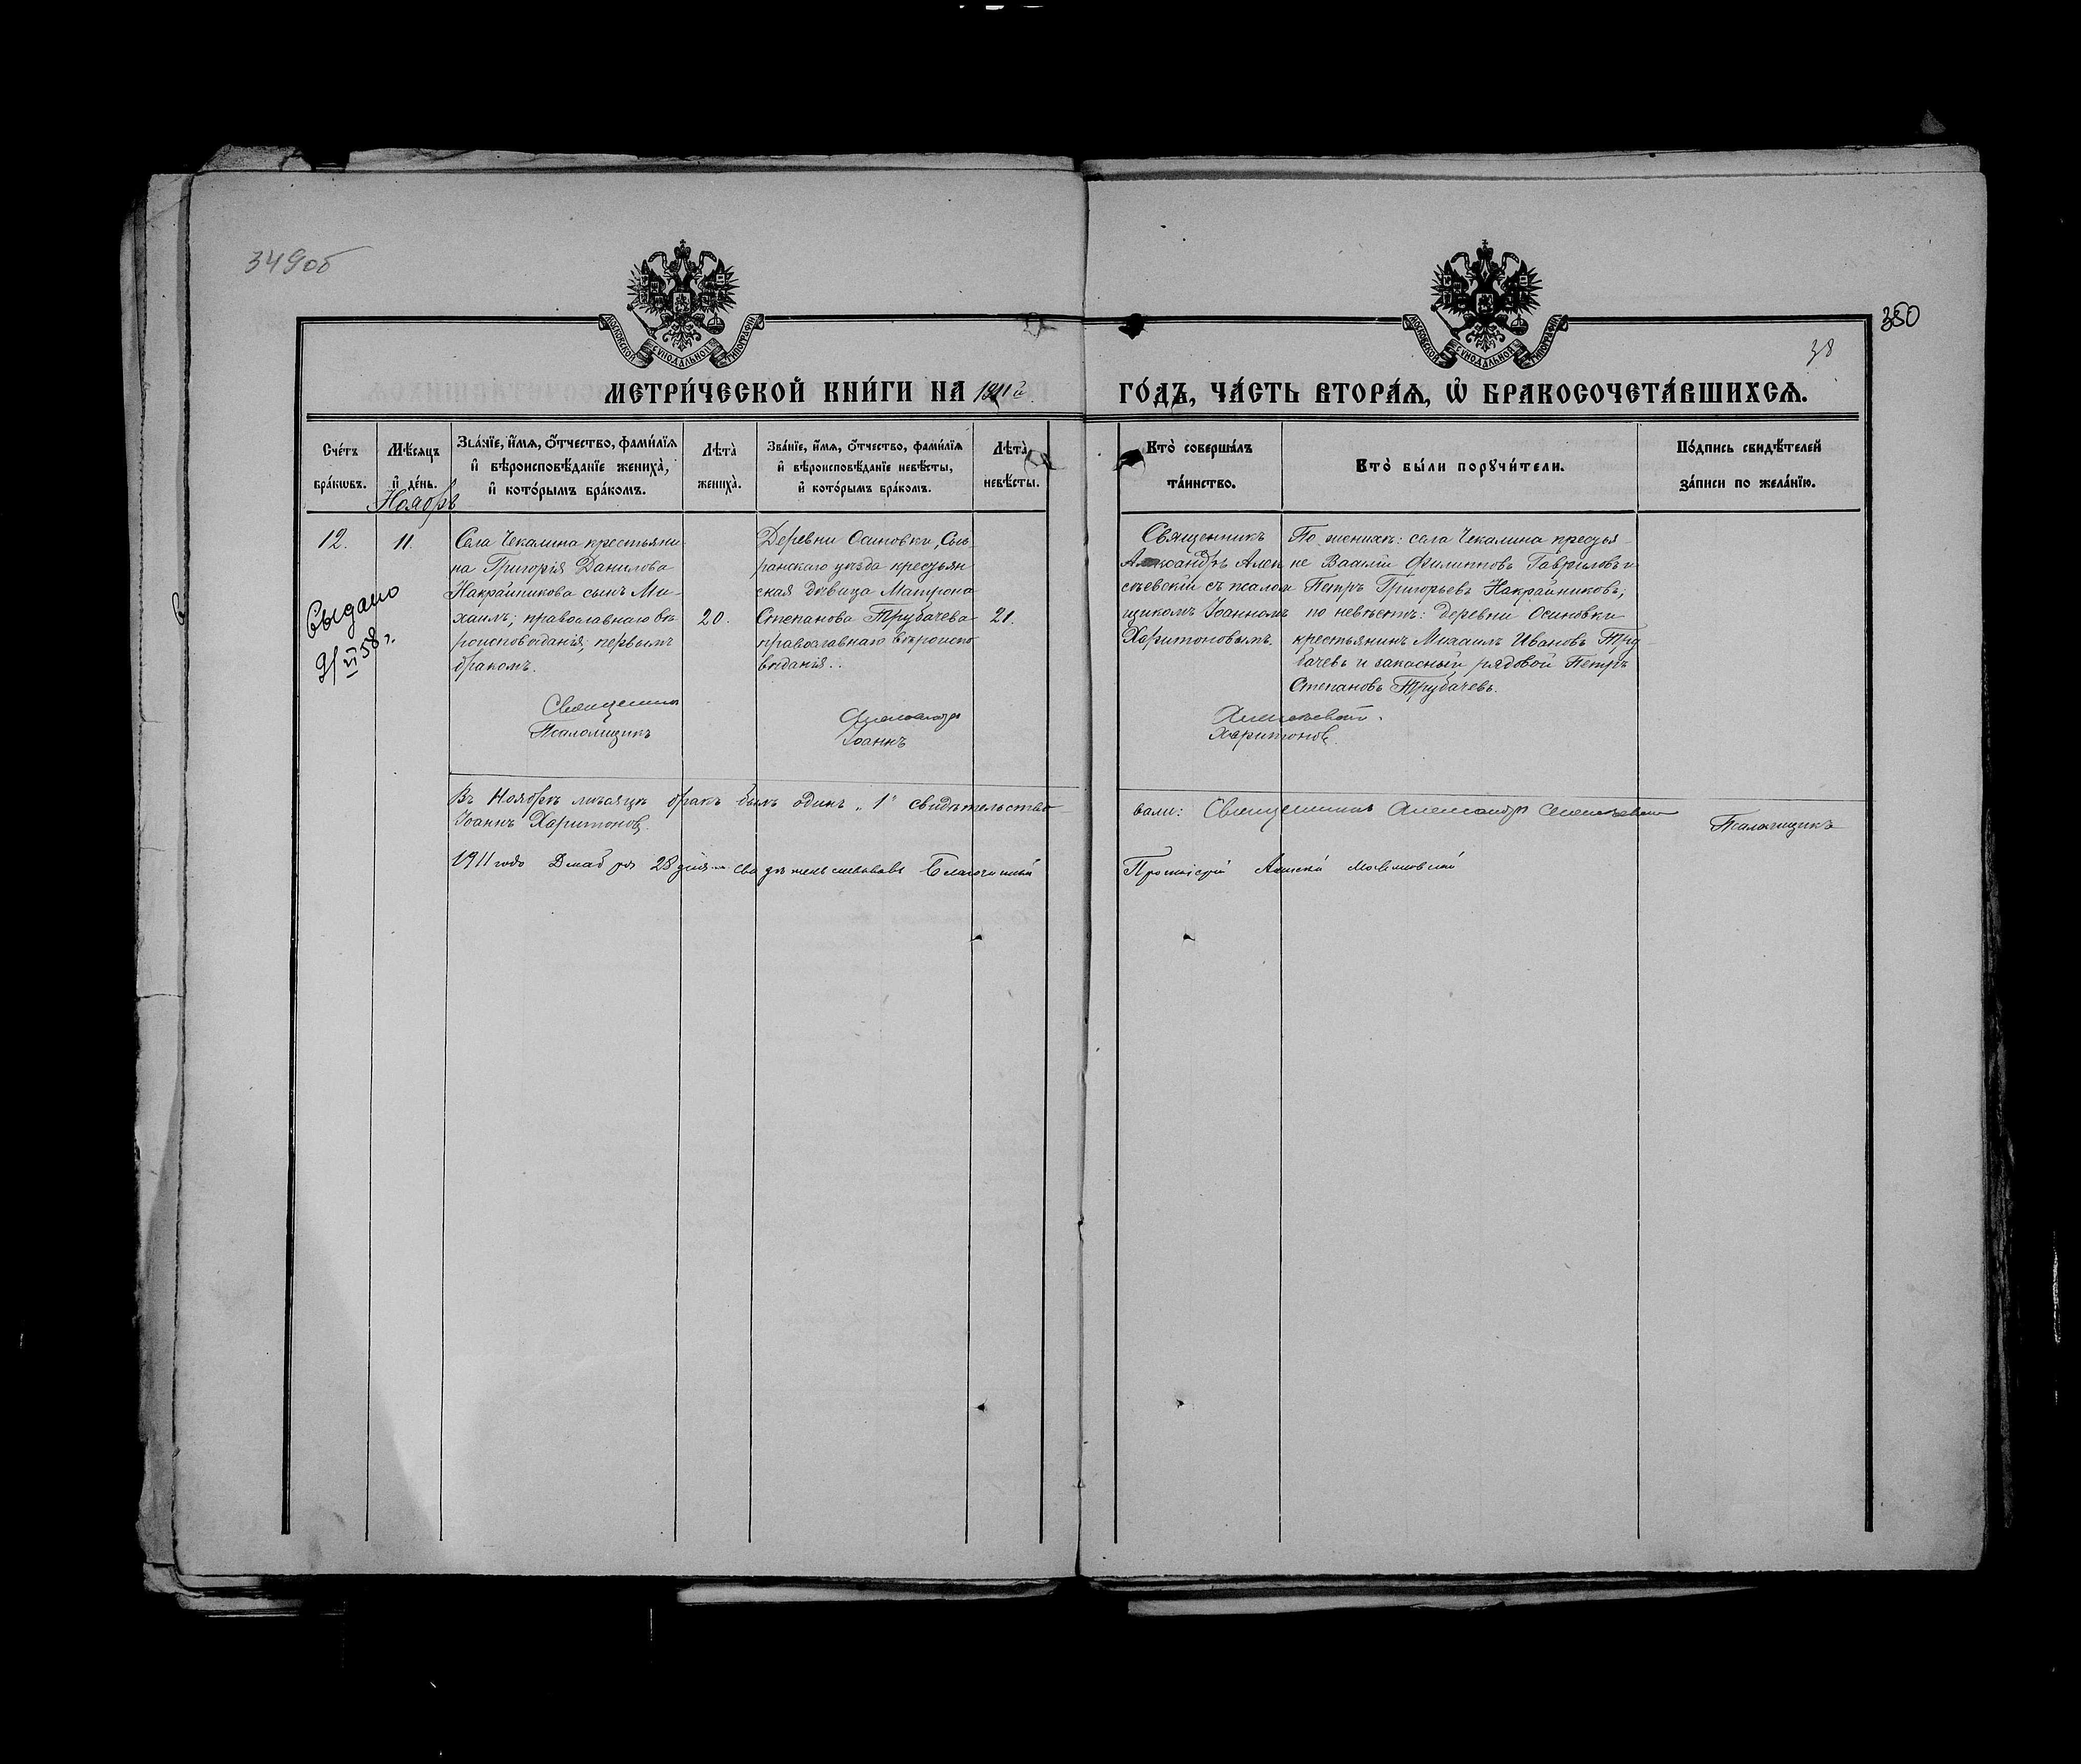 349об
350
38
МОСКОВСКОЙ СѴНОДАЛЬНОЙ ТИПОГРАФІИ
МОСКОВСКОЙ СѴНОДАЛЬНОЙ ТИПОГРАФІИ
МЕТРИ́ЧЕСКОЙ КНИ́ГИ НА 1911й ГО́ДЪ, ЧА́СТЬ ВТОРА́Ѧ, Ѽ БРАКОСОЧЕТА́ВШИХСѦ.
Сче́тъ
бра́кѡвъ.
Мѣ́сяцъ
и҆ де́нь.
Ноябрь
Зва́нїе, и҆́мѧ, ѻ҆́тчество, фами́лїѧ
и҆ вѣроисповѣ́данїе жениха̀,
и҆ кото́рымъ бра́комъ.
Лѣта̀
жениха̀.
Зва́нїе, и҆́мѧ, ѻ҆́тчество, фами́лїѧ
и҆ вѣроисповѣ́данїе невѣ́сты,
и҆ кото́рымъ бра́комъ.
Лѣта̀
невѣ́сты.
Кто̀ соверша́лъ
та́инство.
Кто̀ бы́ли порꙋчи́тели.
По́дпись свидѣ́телей
за́писи по жела́нїю.
12.
11.
Выдано
VI 58 г.
Села Чекалина крестьяни-
на Григорія Данилова
Накрайникова сынъ Ми-
хаилъ, православнаго вѣ-
роисповѣданія, первымъ
бракомъ.
20.
Деревни Осиновки, Сыз-
ранскаго уѣзда крестьян
ская дѣвица Матрона
Степанова Трубачева
православнаго вѣроиспо-
вѣданія.
21.
Священникъ
Александръ Алек
сѣевскій съ псалом
щикомъ Іоанномъ
Харитоновымъ.
По женихѣ: села Чекалина крестья-
не Василій Филипповъ Гавриловъ и
Петръ Григорьевъ Накрайниковъ;
по невѣстѣ: деревни Осиновки
крестьянинъ Михаилъ Ивановъ Тру
бачевъ и запасный рядовой Петръ
Степановъ Трубачевъ.
Священникъ Александръ Алексѣевскій.
Псаломщикъ Іоаннъ Харитоновъ.
Въ Ноябрѣ мѣсяцѣ бракъ былъ одинъ „1" свидѣтельство
вали: Священникъ Александръ Алексѣевскій Псаломщикъ
Іоаннъ Харитоновъ.
1911 года Декабря 28 дня свидѣтельствовалъ Благочинный
Протоіерей Алексій